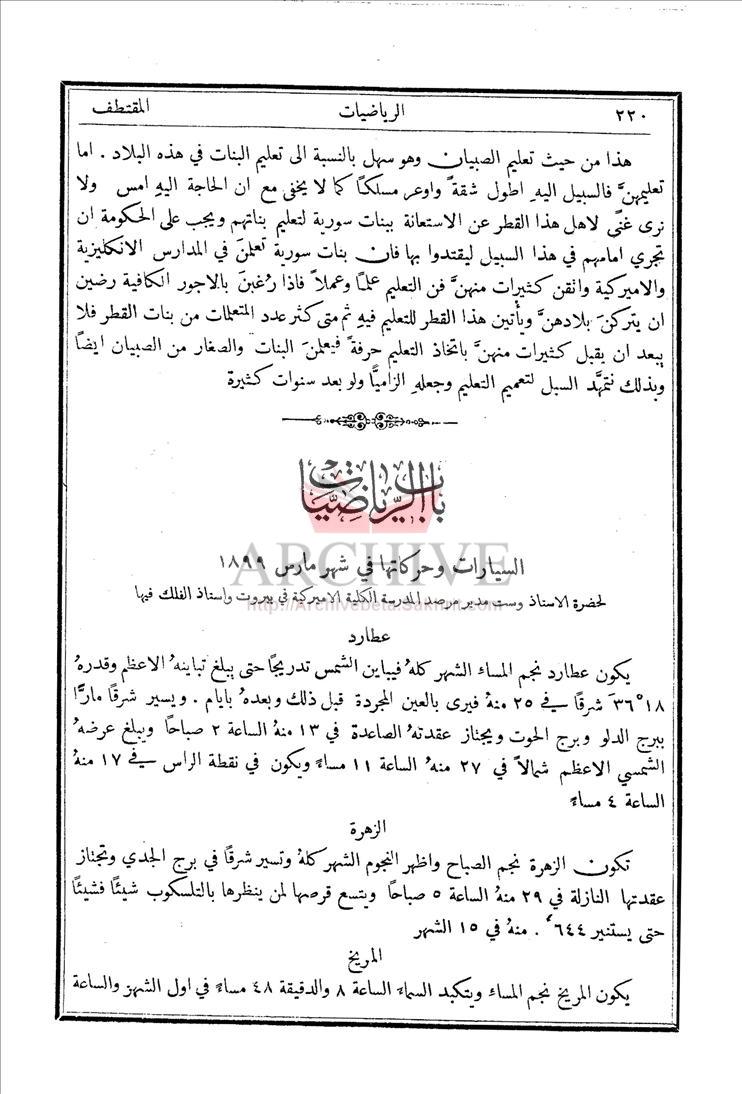 ٢٢٠ الرياضيات المقتطف
هذا من حيث تعليم الصبيان وهو سهل بالنسبة الى تعليم البنات في هذه البلاد . اما
تعليمهنَّ فالسبيل اليهِ اطول شقةً واوعر مسلكًا كما لا يخفى مع ان الحاجة اليهِ امس ولا
نرى غنًى لاهل هذا القطر عن الاستعانة ببنات سورية لتعليم بناتهم ويجب على الحكومة ان
تجري امامهم في هذا السبيل ليقتدوا بها فان بنات سورية تعلمنَ في المدارس الانكليزية
والاميركية واتقن كثيرات منهنَّ فن التعليم علمًا وعملاً فاذا رُغبنَ بالاجور الكافية رضين
ان يتركنَ بلادهنَّ ويأتين هذا القطر للتعليم فيهِ ثم متى كثر عدد المتعلمات من بنات القطر فلا
يبعد ان يقبل كثيرات منهنَّ باتخاذ التعليم حرفةً فيعلمنَ البنات والصغار من الصبيان ايضًا
وبذلك تتمهَّد السبل لتعميم التعليم وجعلهِ الزاميًّا ولو بعد سنوات كثيرة
باب الرياضيات
ARCHIVE
السيارات وحركاتها في شهر مارس ١٨٩٩
http://Archivebeta.Sakhrit.com
لحضرة الاستاذ وست مدير مرصد المدرسة الكلية الاميركية في بيروت واستاذ الفلك فيها
عطارد
يكون عطارد نجم المساء الشهر كلهُ فيباين الشمس تدريجًا حتى يبلغ تباينهُ الاعظم وقدرهُ
١٨° ٣٦َ شرقًا في ٢٥ منهُ فيرى بالعين المجردة قبل ذلك وبعدهُ بايام . ويسير شرقًا مارًّا
ببرج الدلو وبرج الحوت ويجتاز عقدتهُ الصاعدة في ١٣ منهُ الساعة ٢ صباحًا ويبلغ عرضهُ
الشمسي الاعظم شمالاً في ٢٧ منهُ الساعة ١١ مساءً ويكون في نقطة الراس في ١٧ منهُ
الساعة ٤ مساءً
الزهرة
تكون الزهرة نجم الصباح واظهر النجوم الشهر كلهُ وتسير شرقًا في برج الجدي وتجتاز
عقدتها النازلة في ٢٩ منهُ الساعة ٥ صباحًا ويتسع قرصها لمن ينظرها بالتلسكوب شيئًا فشيئًا
حتى يستنير ٦٤٤ . منهُ في ١٥ الشهر
المريخ
يكون المريخ نجم المساء ويتكبد السماء الساعة ٨ والدقيقة ٤٨ مساءً في اول الشهر والساعة